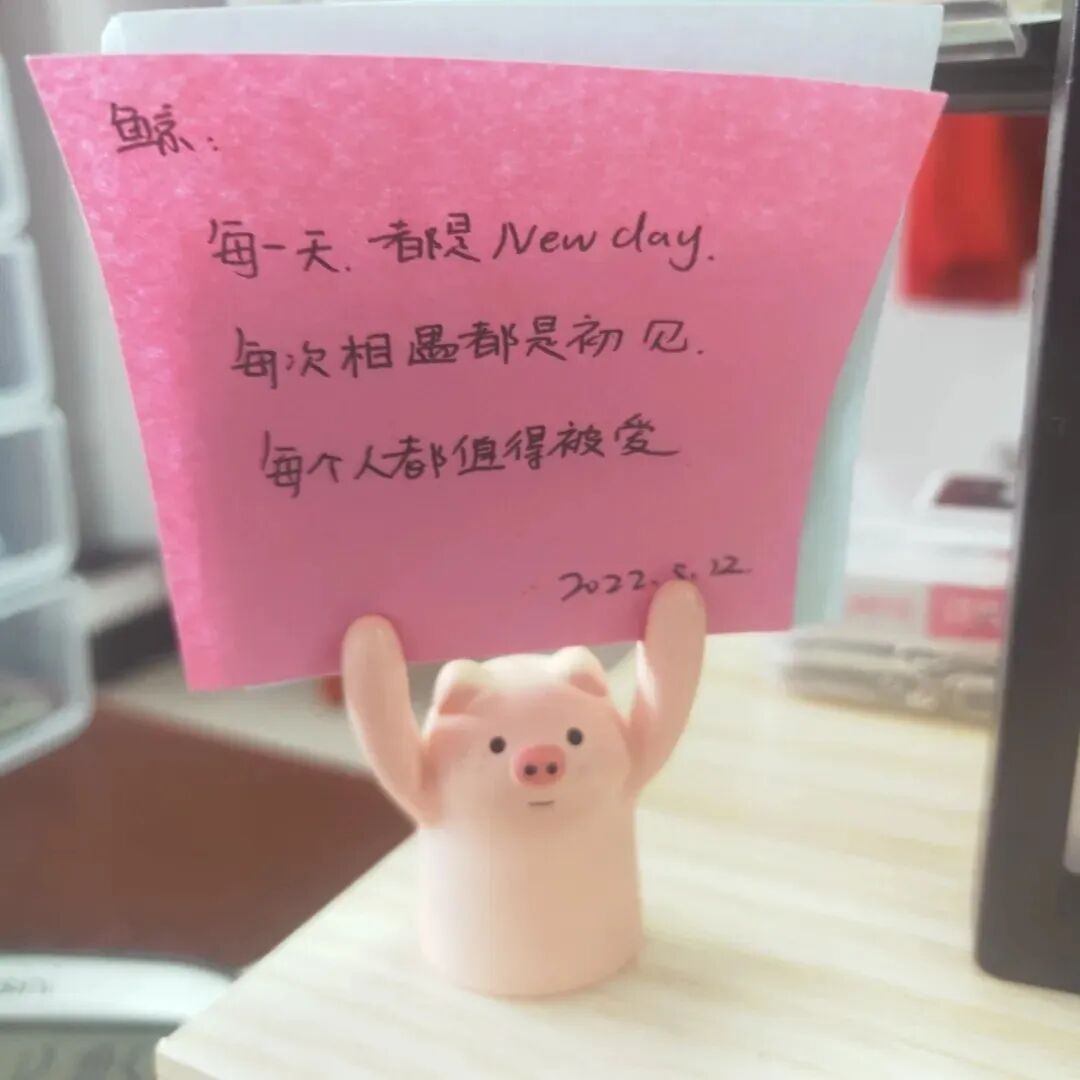 鲸:
每一天.都是New day.
每次相遇都是初见.
每个人都值得被爱
2022.5.12.